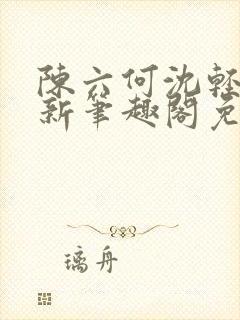 陳六何沈輕
新筆趣閣免
璃舟